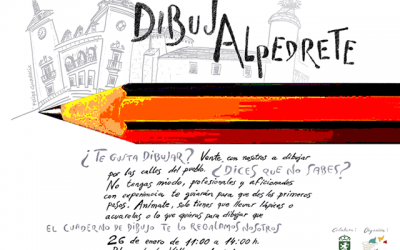 DIBUJ
ALPEDRETE
¿TE GUSTA DIBUJAR? Vente con nosotros a dibujar
por las calles del pueblo. ¿DICES QUE NO SABES?
No tengas miedo, profesionales y aficionados
con experiencia te guiarán para que des los primeros
pasos. Anímate, solo tienes que llevar lápices o
acuarelas o lo que quieras para dibujar que
EL CUADERNO DE DIBUJO TE LO REGALAMOS NOSOTROS
26 de enero de 11:00 a 14:00 h.
Colabora:
Organiza: